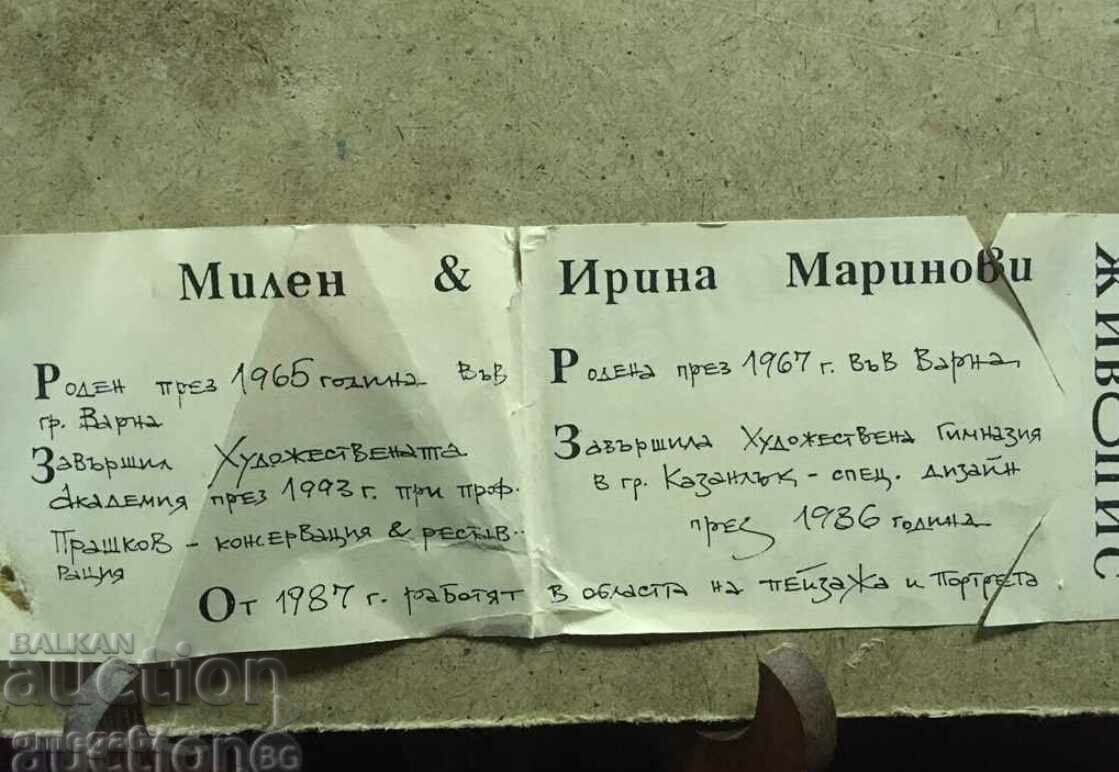 Милен & Ирина Маринови
ЖИВОПИС
Роден през 1965 година във
гр. Варна
Завършил Художествената
Академия през 1993 г. при проф.
Прашков - консервация & рестав-
рация
Родена през 1967 г. във Варна
Завършила Художествена Гимназия
в гр. Казанлък - спец. дизайн
през 1986 година
От 1987 г. работят в областа на пейзажа и портрета
BALKAN
auction
auctionBG